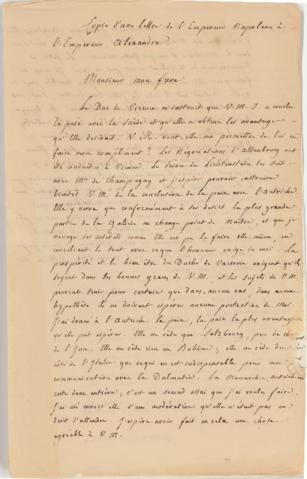 Copie d'une lettre de l'Empereur Napoleon à
l'Empereur Alexandre
Monsieur mon frere
Le Duc de Vicence m'instruit que V. M. I. a conclu
la paix avec la Suède et qu'elle a obtenu les avantages
qu'elle desirait. V. M. veut elle me permettre de lui en
faire mon compliment? Les Negociations d'Altenbourg ont
été conduites à Vienne. Le Prince de Lichtenstein les suit
avec Mr. de Champagny et j'espere pouvoir instruire
bientot V. M. de la conclusion de la paix avec l'Autriche
Elle y verra que conformement à ses desirs la plus grande
partie de la Galicie ne change point de Maitre, et que j'ai
menagé ses interets comme elle eut pu le faire elle même en
conciliant le tout avec ce que l'honneur exige de moi. La
prosperité et le bien être du Duché de Varsovie exigent qu'il
soit dans les bonnes graces de V. M. et les sujets de V. M.
peuvent tenir pour certain que dans aucun cas dans aucune
hypothèse ils ne doivent espérer aucune protection de moi
J'ai donné à l'Autriche la paix, la plus avantageuse
qu'elle put espérer. Elle ne cède que Salzbourg, peu de chose
de l'Inn. Elle ne cède rien en Bohème; elle ne cède du
coté de l'Italie que ce qui m'est indispensable pour ma
communication avec la Dalmatie. La Monarchie autrichienne
reste donc entière, c'est un second essai que j'ai voulu faire.
J'ai usé envers elle d'une modération qu'elle n'était pas en
droit d'attendre. J'espère avoir fait en cela une chose
agréable à V. M.